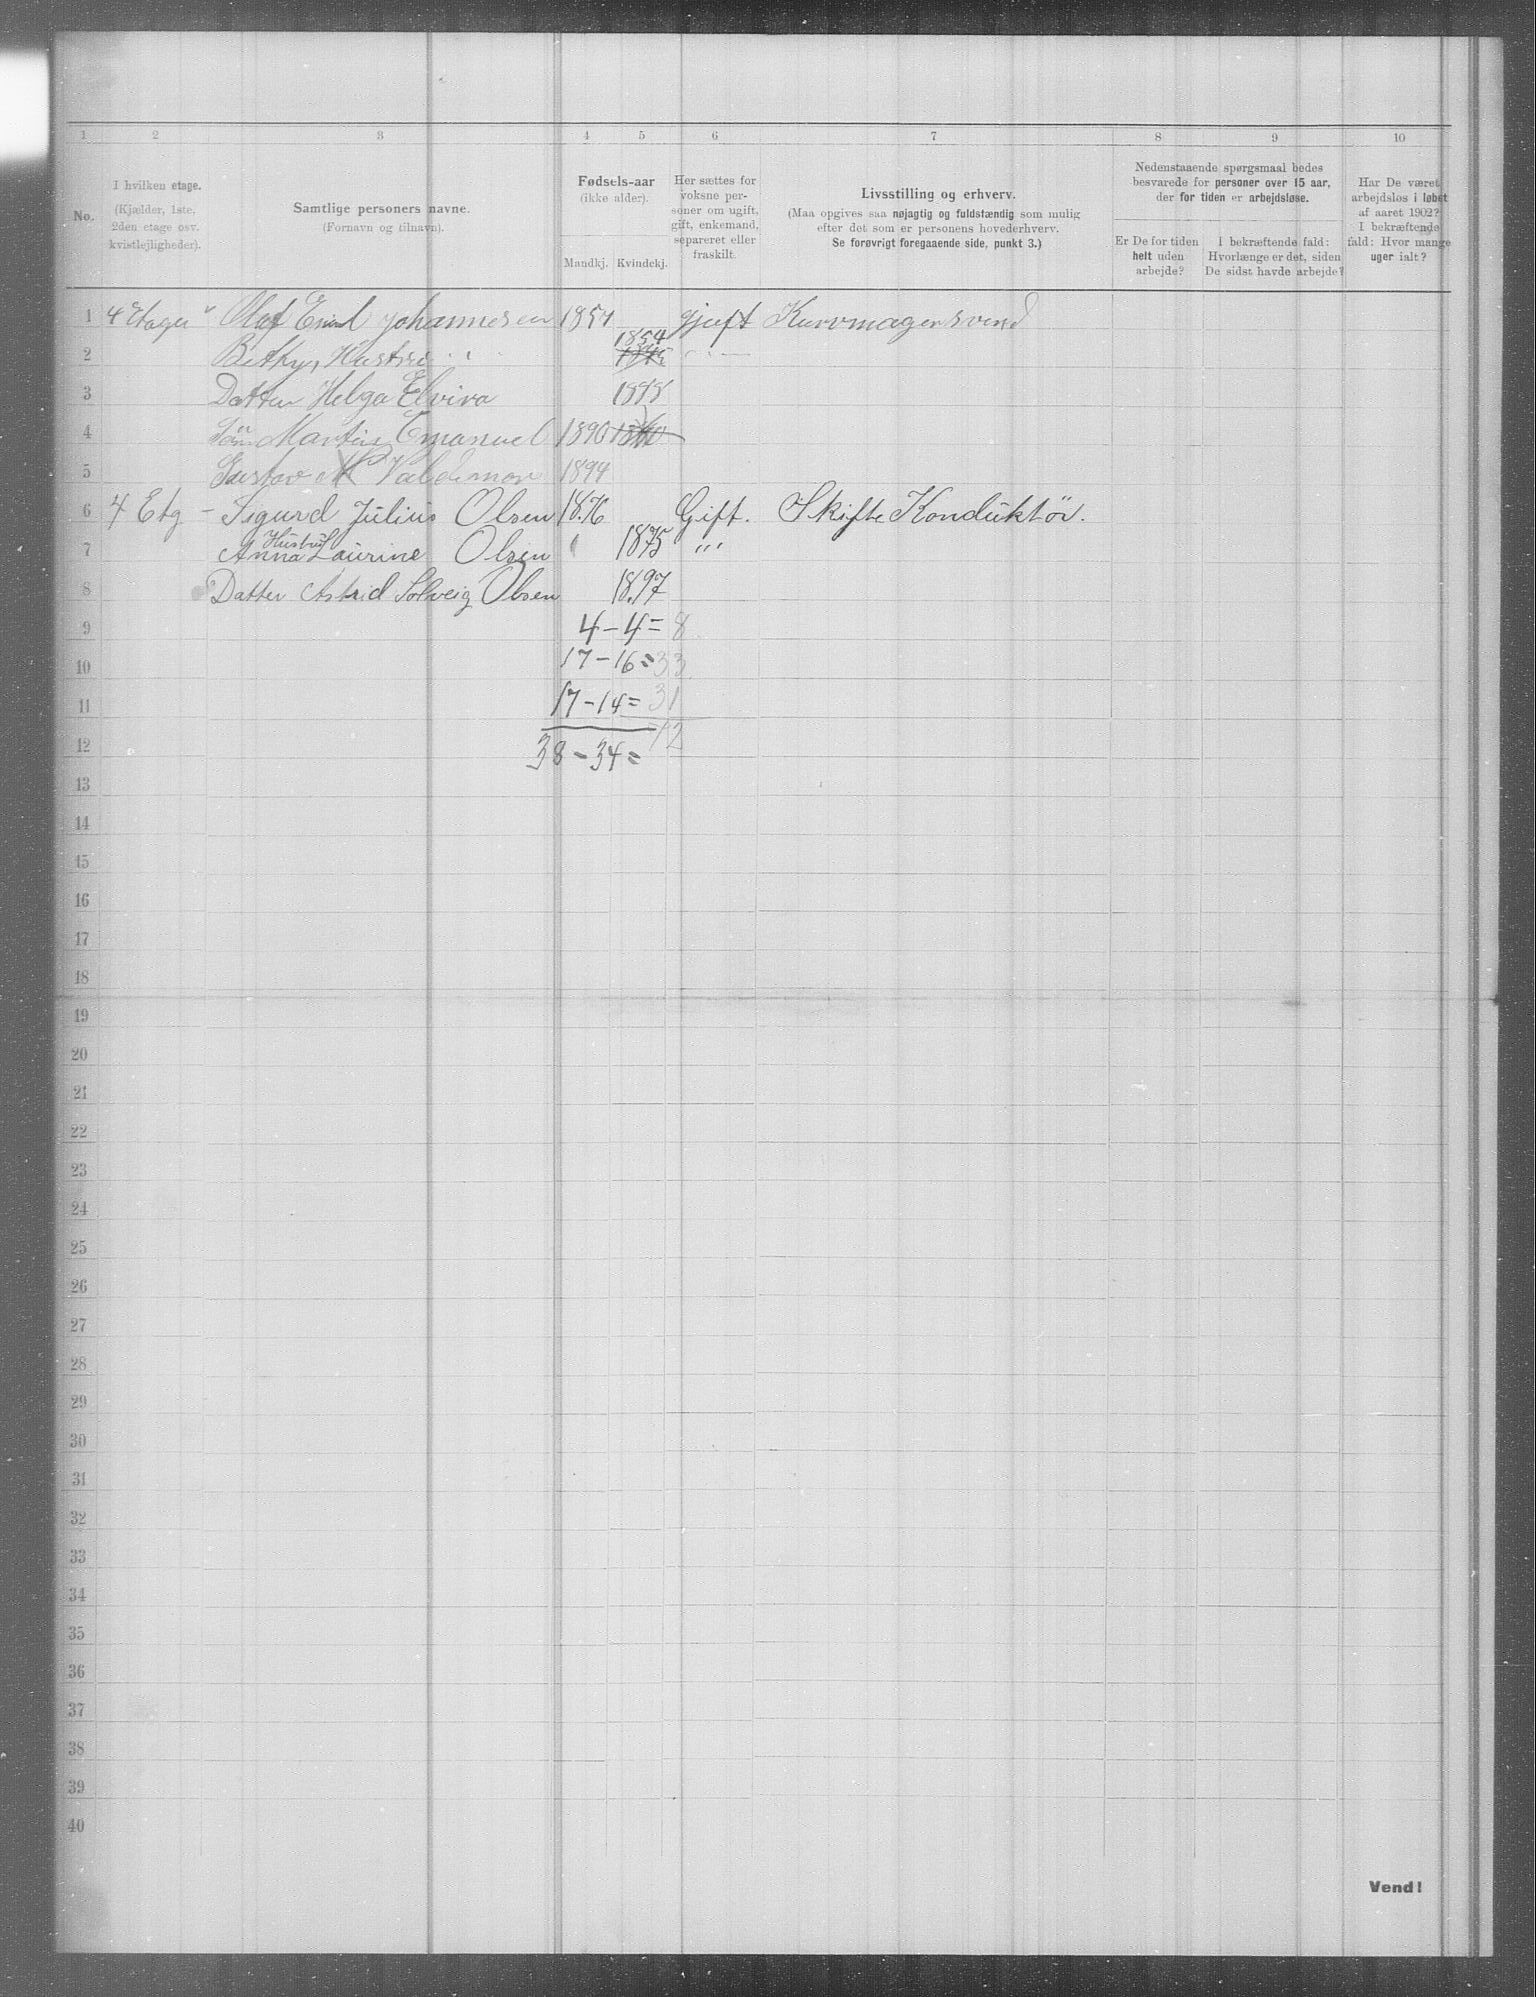 1 2 3 4 5 6 7 8 9 10
No.
I hvilken etage.
(Kjælder, 1ste,
2den etage osv.
kvistlejligheder).
Samtlige personers navne.
(Fornavn og tilnavn).
Fødsels-aar
(ikke alder).
Mandkj. Kvindekj.
Her sættes for
voksne per-
soner om ugift,
gift, enkemand,
separeret eller
fraskilt.
Livsstilling og erhverv.
(Maa opgives saa nøjagtig og fuldstændig som mulig
efter det som er personens hovederhverv.
Se forøvrigt foregaaende side, punkt 3.)
Nedenstaaende spørgsmaal bedes
besvarede for personer over 15 aar,
der for tiden er arbejdsløse.
Er De for tiden
helt uden
arbejde?
I bekræftende fald:
Hvorlænge er det, siden
De sidst havde arbejde?
Har De været
arbejdsløs i løbet
af aaret 1902?
I bekræftende
fald: Hvor mange
uger ialt?
1 4 Etager " Olaf Emil Johannesen 1857 gjift Kurvmagersvend
1854
2 Bethy, Hustru
3 Datter Helga Elvira 1888
4 Sön Martin Emanuel 1890 1890
5 Gustav Valdemar 1894
6 4 Etg - Sigurd Julius Olsen 1876 Gift. Skifte Konduktör.
Hustru
7 Anna Laurine Olsen " 1875 "
8 Datter Astrid Solveig Olsen 1897
9 4-4=8
10 17-16=33
11 17-14=31
72
12 38-34=
13
14
15
16
17
18
19
20
21
22
23
24
25
26
27
28
29
30
31
32
33
34
35
36
37
38
39
40
Vend!